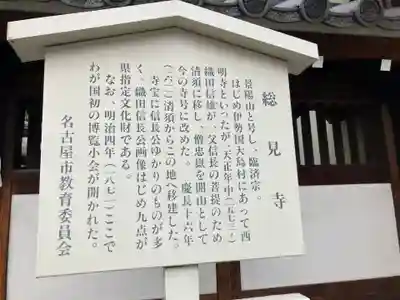 総見寺
景陽山と号し、臨済宗。
はじめ伊勢国大島村にあって西
明寺といったが、天正年中(一五七三~)
織田信雄が、父信長の菩提のため
清須に移し、僧忠嶽を開山として
今の寺号に改めた。慶長十六年
(一六一一)清須からこの地へ移建した。
寺宝に信長公ゆかりのものが多
く、織田信長公画像はじめ九点が
県指定文化財である。
なお、明治四年(一八七一)ここで
わが国初の博覧小会が開かれた。
名古屋市教育委員会